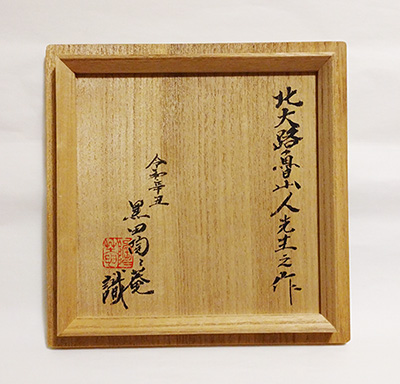 北大路魯山人先生之作
令和辛丑
黒田陶々菴
識